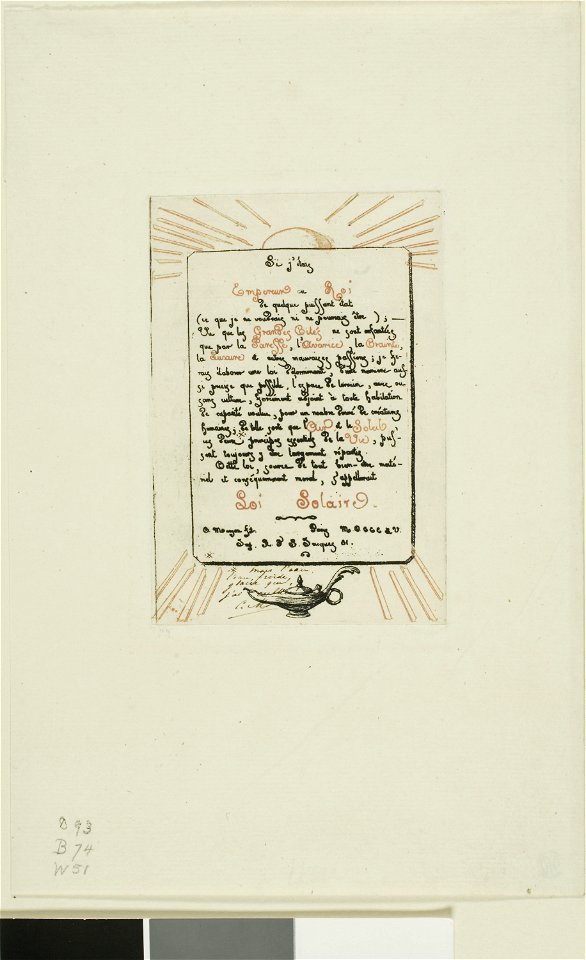 Si j'étais
Empereur ou Roi
de quelque puissant état
(ce que je ne voudrais ni ne pourrais être) ; —
Vu que les Grandes Cités ne sont enfantées
que par la Paresse, l'Avarice, la Crainte,
la Luxure & autres mauvaises passions ; je fe-
rais élaborer une loi déterminant, d'une manière aus-
si précise que possible, l'espace de terrain, avec ou
sans culture, forcément adjoint à toute habitation
de capacité voulue, pour un nombre donné de créatures
humaines ; de telle sorte que l'Air & le Soleil
ces deux principes essentiels de la Vie, fus-
sent toujours y être largement répartis
Cette loi, source de tout bien-être maté-
riel et conséquemment moral, s'appellerait
Loi Solaire.
C. Meryon ft. Paris MDCCCLV.
Imp. R. d S. Jacques 81.
8 93
B 74
W 51